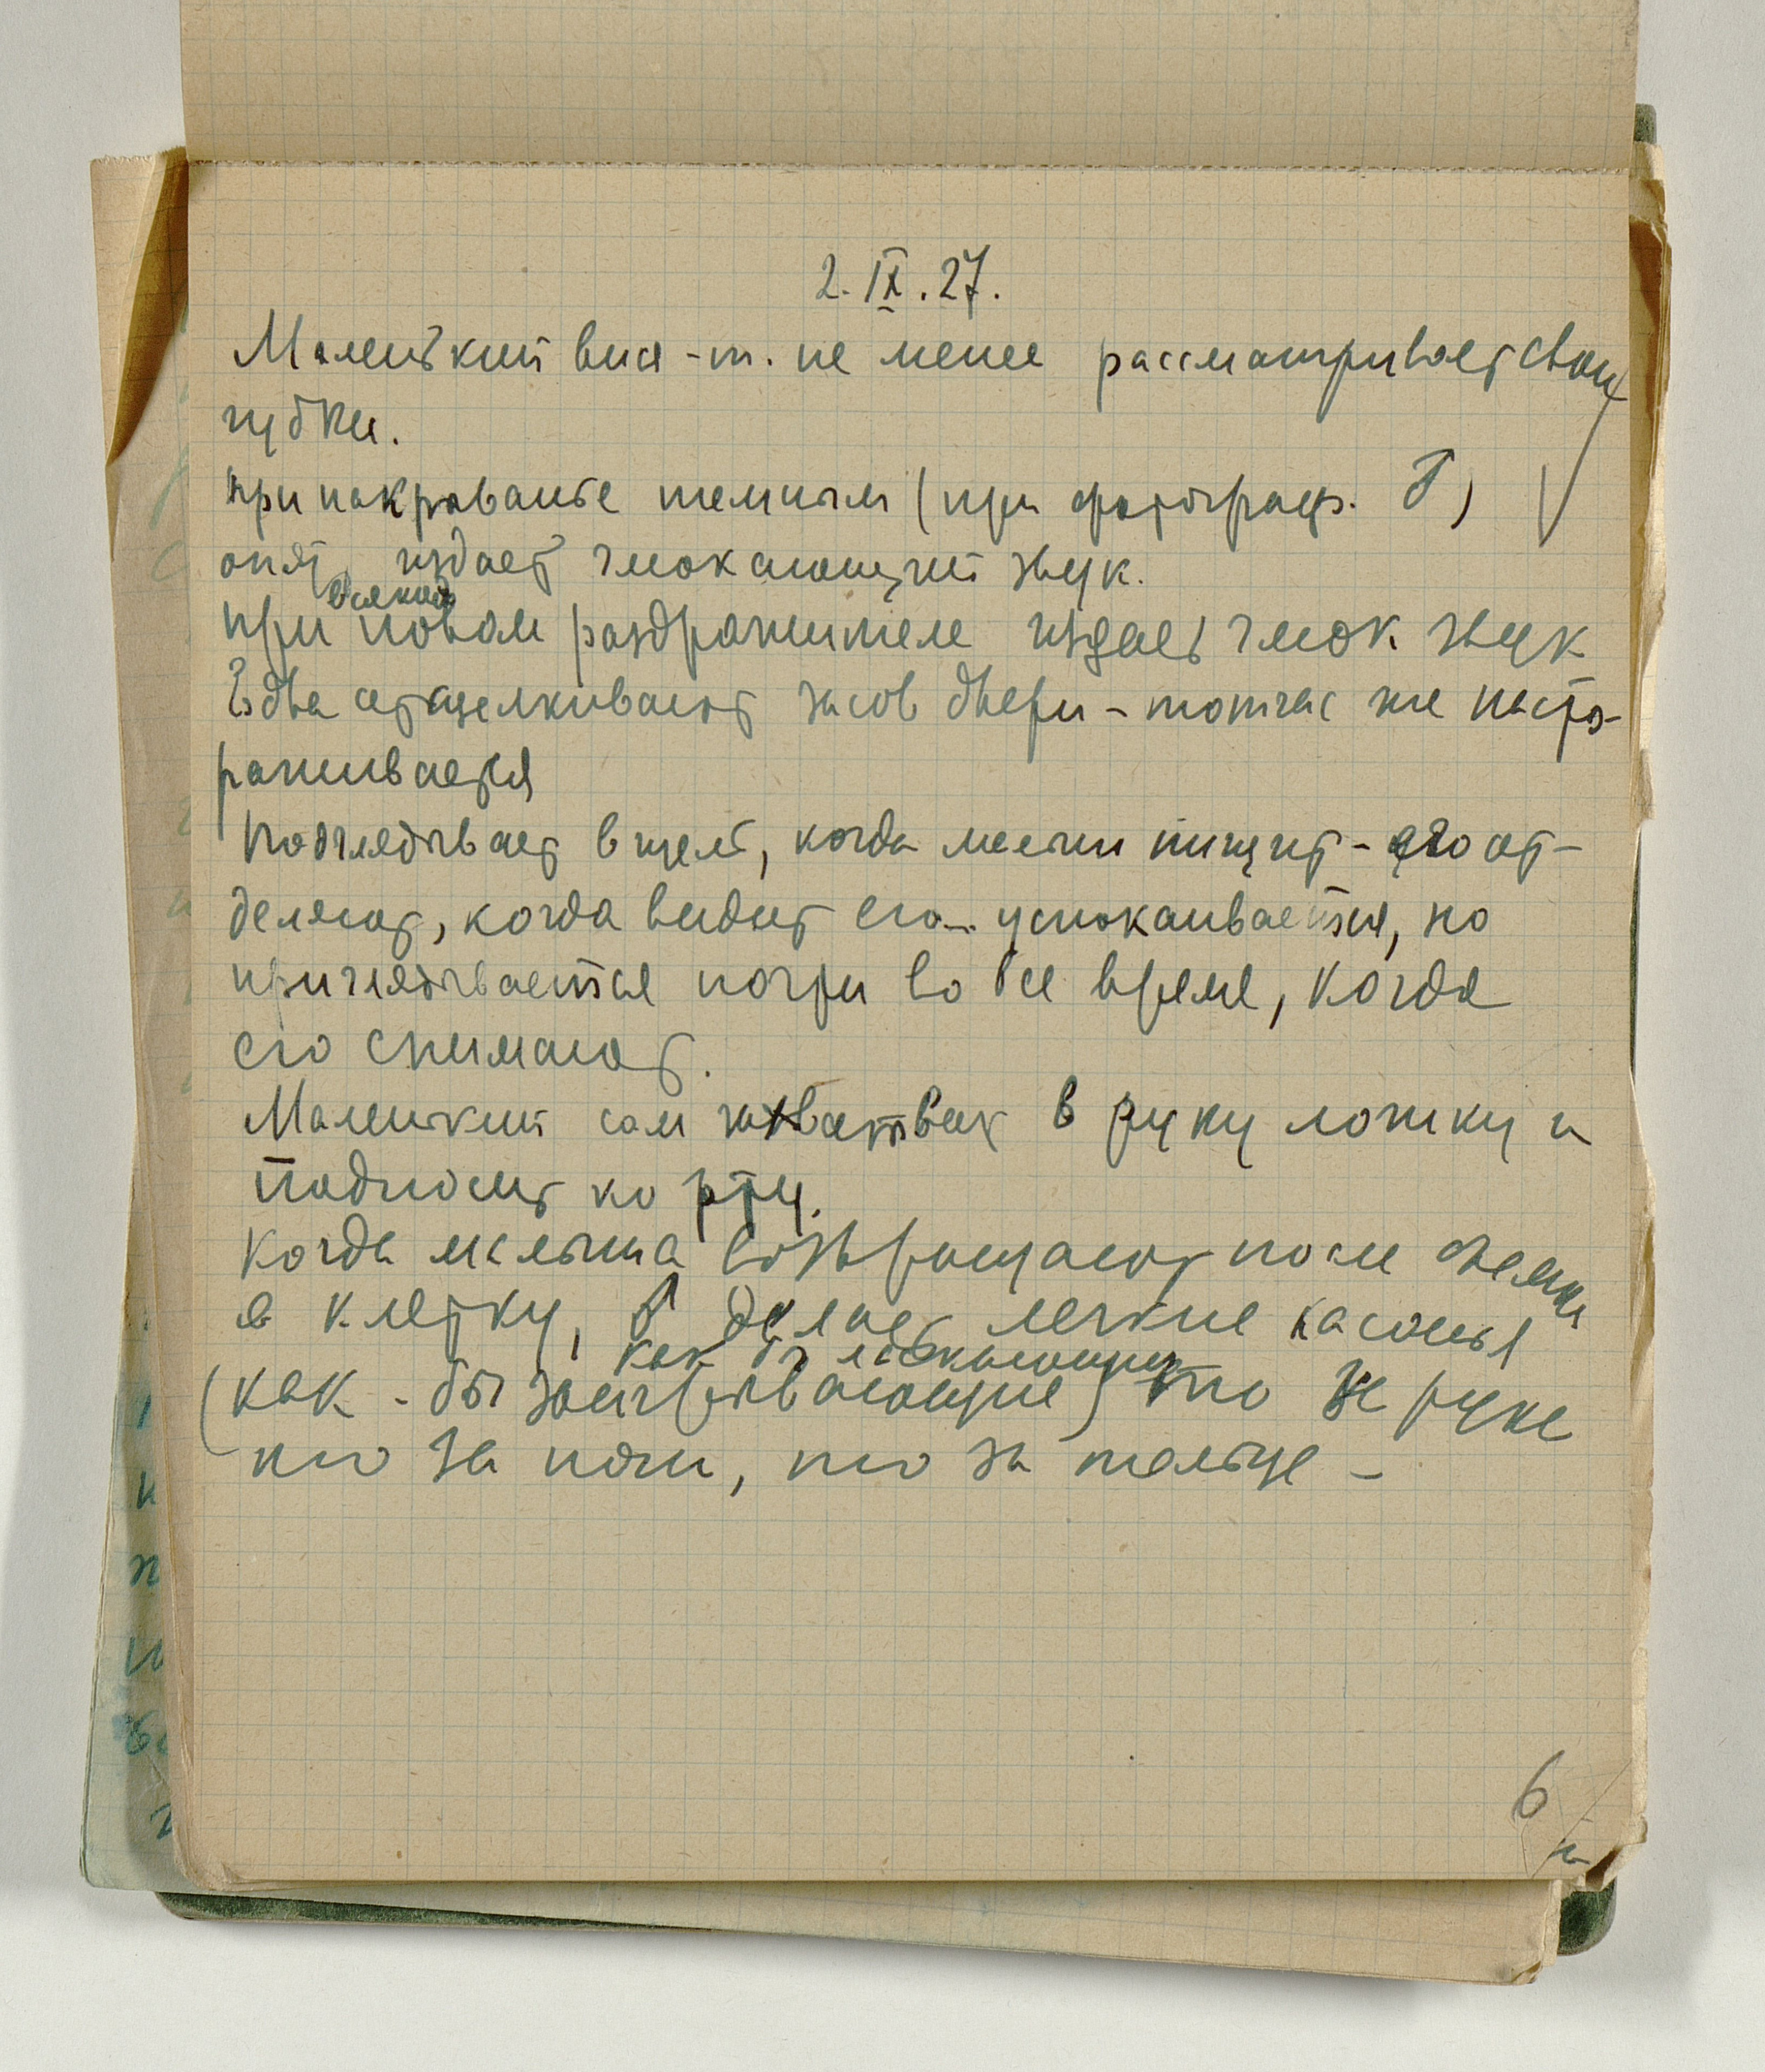 2.IX.27.
Маленький вися-т. не менее рассматривает свои
губки.
при покрывание темным (при фотограф. б)
опят издает чмокающий звук.
всяком
при новом раздражителе издает чмок звук
Едва отщелкивают засов двери - тотчас же насто-
раживается
Подглядывает в щель, когда малыш пищит - его от-
деляют, когда видит его - успокаивается, но
приглядывается почти во все время, когда
его снимают.
Маленький сам захватывает в руку ложку и
подносит ко рту.
Когда малыша возвращают после съемки
в клетку, б делает легкие касанья
как бы
(как-бы заигрывающие) то за руке
то за ноги, то за тельце -
6